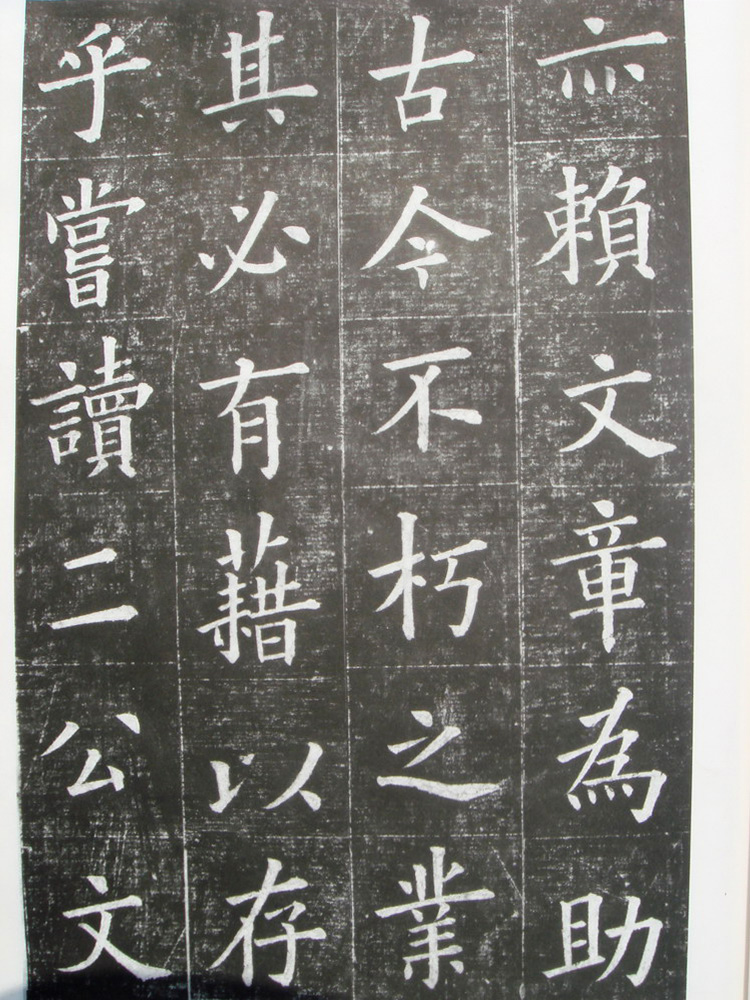 亦賴文章為助
古今不朽之業
其必有藉以存
乎嘗讀二公文